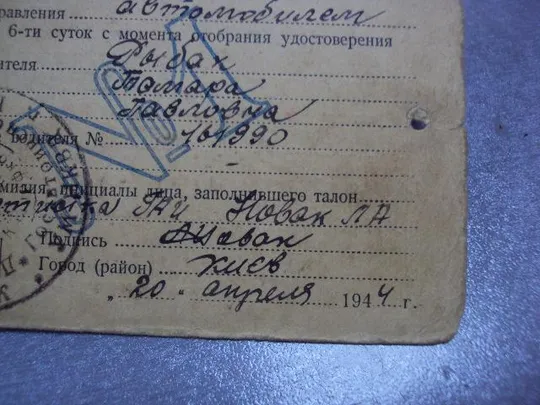 правления автомобилем
6-ти суток с момента отобрания удостоверения
ителя Рыбак
Тамара
Павловна
водителя № 161990
милия, инициалы лица, заполнившего талон
ГАИ Новак Л А
Подпись Новак
Город (район) Киев
"20" апреля 1944 г.
№1